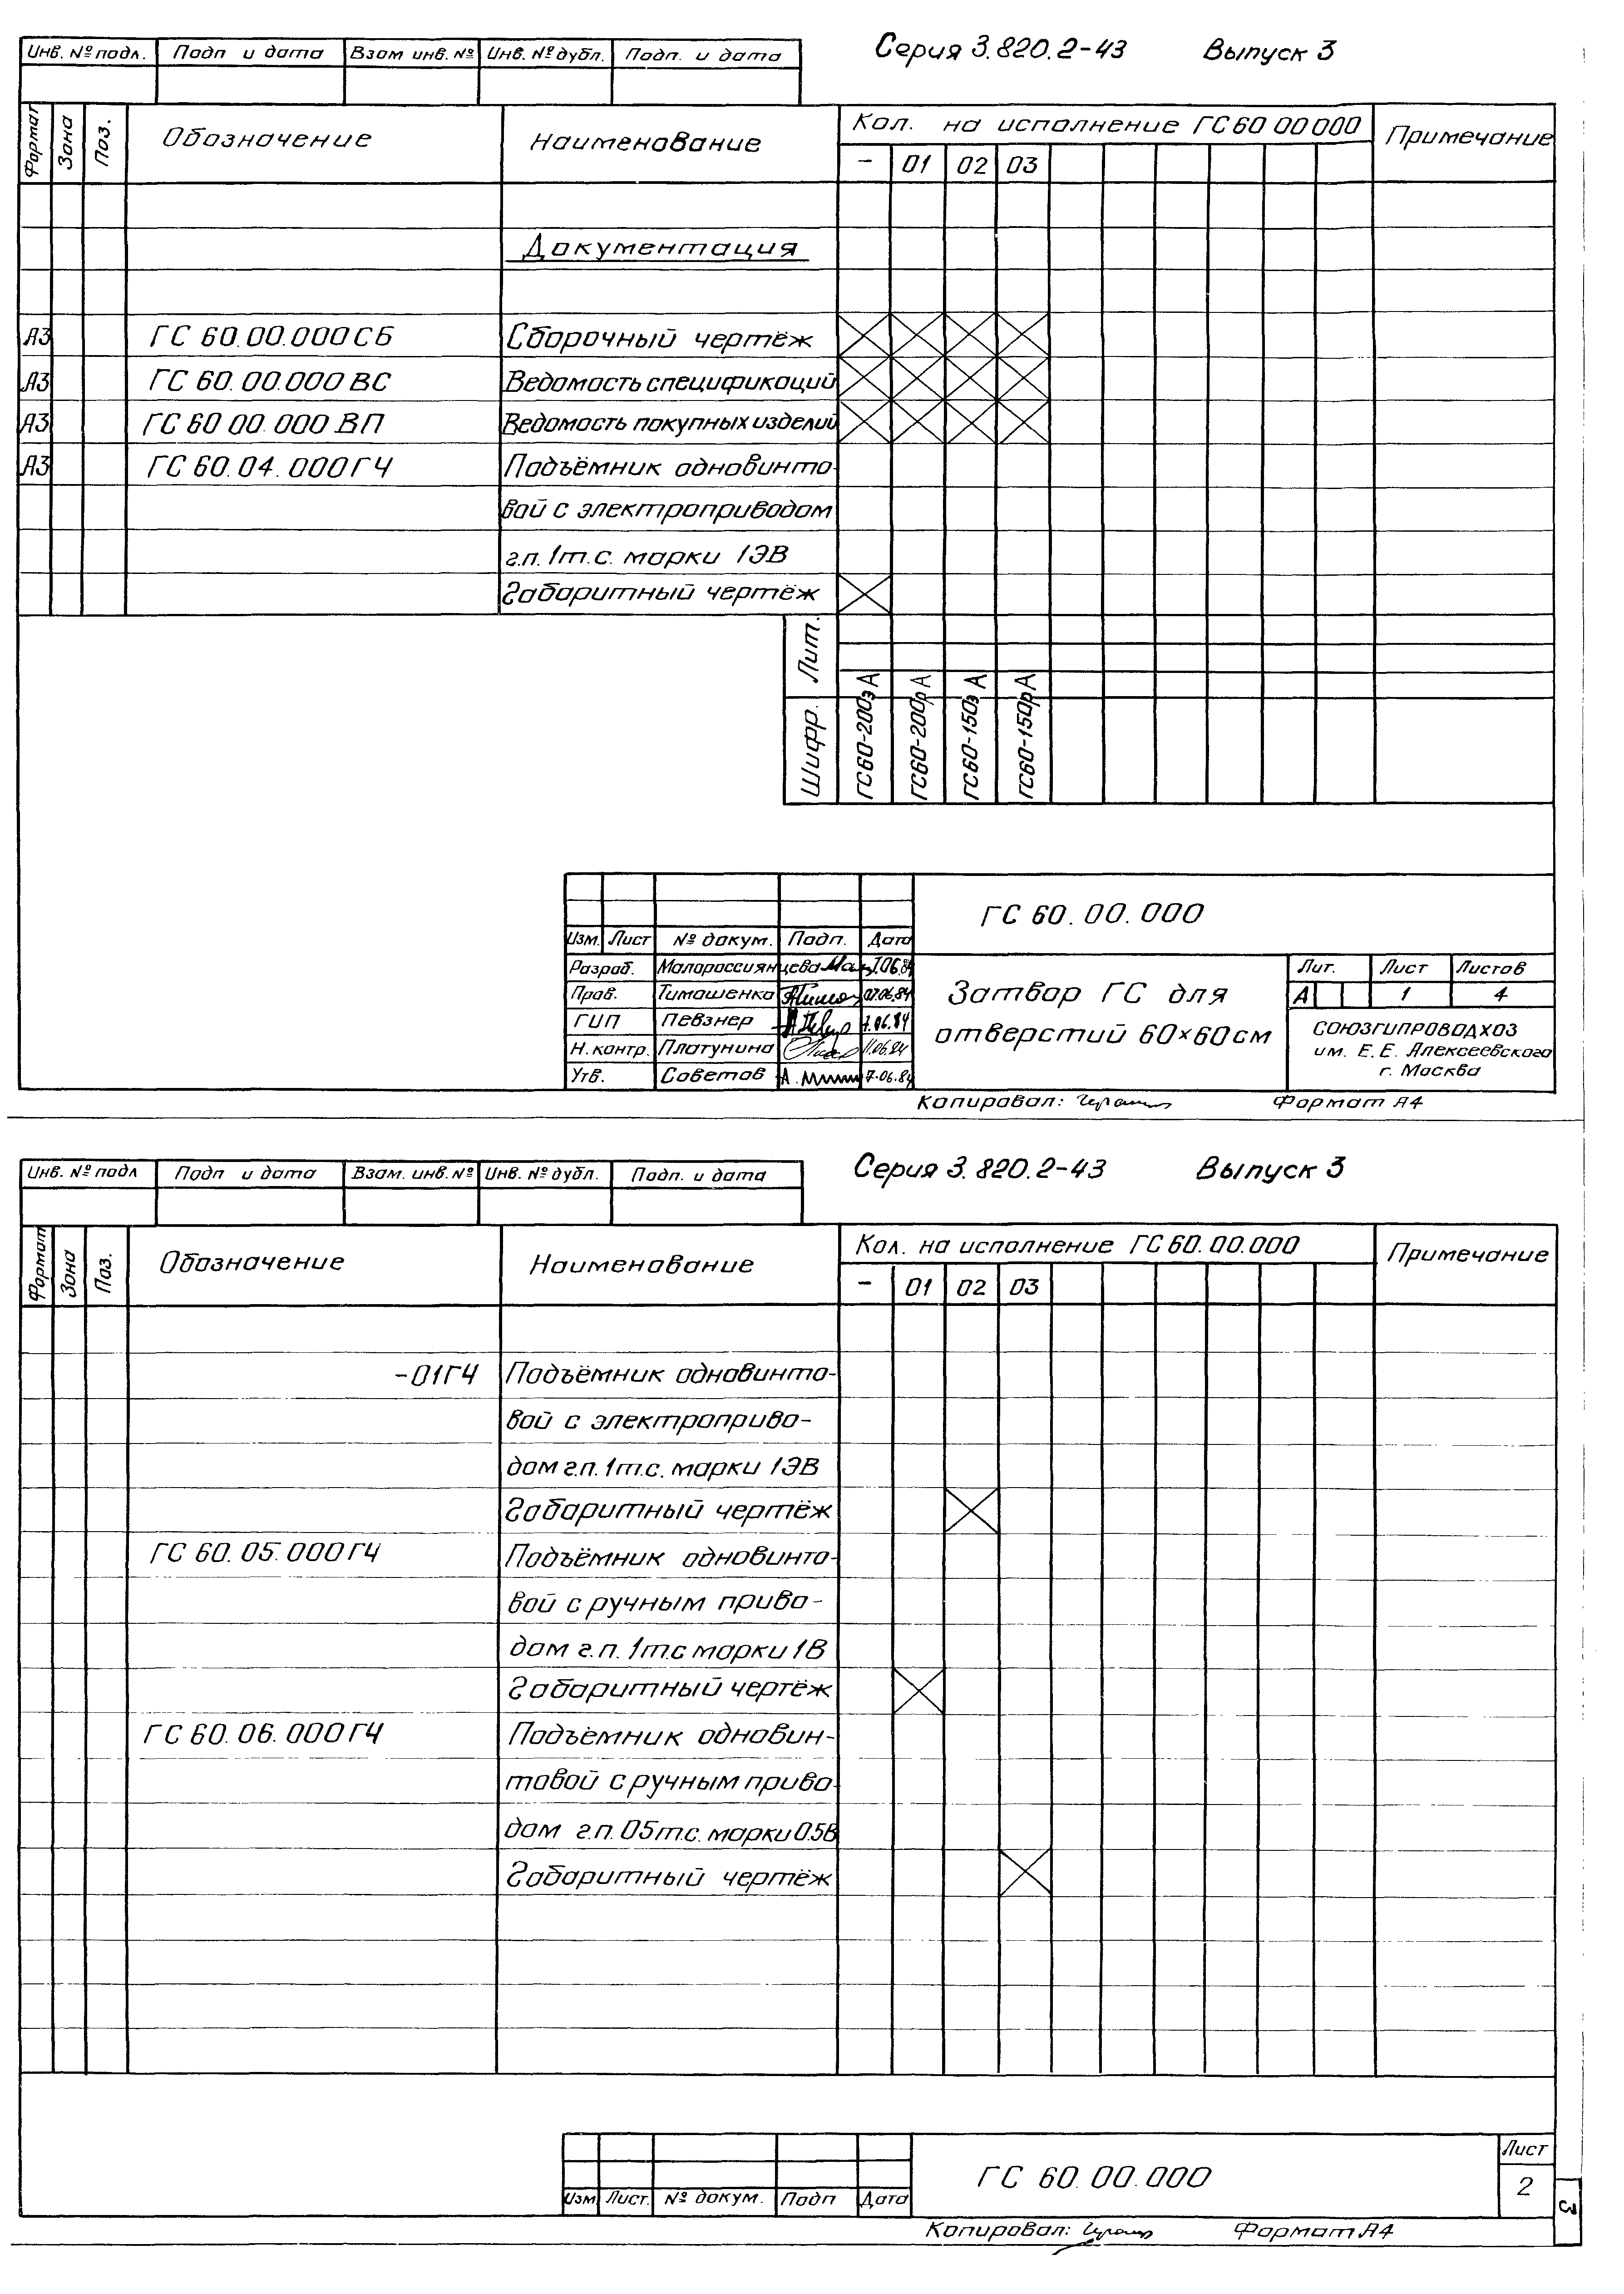 Серия 3.820.2-43 Выпуск 3
Инв. № подл. Подп и дата Взам инв. № Инв. № дубл. Подп. и дата
Формат Зона Поз. Обозначение Наименование Кол. на исполнение ГС 60 00 000 Примечание
- 01 02 03
Документация
А3 ГС 60.00.000 СБ Сборочный чертёж
А3 ГС 60.00.000 ВС Ведомость спецификаций
А3 ГС 60 00.000 ВП Ведомость покупных изделий
А3 ГС 60.04.000 ГЧ Подъёмник одновинто-
вой с электроприводом
г.п. 1т.с. марки 1ЭВ
Габаритный чертёж
Лит.
Шифр. ГС60-200э А ГС60-200р А ГС60-150э А ГС60-150р А
ГС 60.00.000
Изм. Лист № докум. Подп. Дата
Разраб. Малороссиянцева 7.06.84
Пров. Тимошенко 07.06.84
ГИП Певзнер 7.06.84
Н.контр. Платунина 11.06.84
Утв. Советов 7.06.84
Затвор ГС для
отверстий 60×60см
Лит. Лист Листов
А 1 4
СОЮЗГИПРОВОДХОЗ
им. Е.Е. Алексеевского
г. Москва
Копировал: Формат А4
Серия 3.820.2-43 Выпуск 3
Инв. № подл Подп и дата Взам. инв. № Инв. № дубл. Подп. и дата
Формат Зона Поз. Обозначение Наименование Кол. на исполнение ГС 60.00.000 Примечание
- 01 02 03
-01ГЧ Подъёмник одновинто-
вой с электроприво-
дом г.п. 1т.с. марки 1ЭВ
Габаритный чертёж
ГС 60.05.000 ГЧ Подъёмник одновинто-
вой с ручным приво-
дом г.п. 1т.с марки 1В
Габаритный чертёж
ГС 60.06.000 ГЧ Подъёмник одновин-
товой с ручным приво-
дом г.п. 05т.с. марки 0.5В
Габаритный чертёж
ГС 60.00.000
Изм Лист. № докум. Подп Дата
Лист
2
3
Копировал: Формат А4